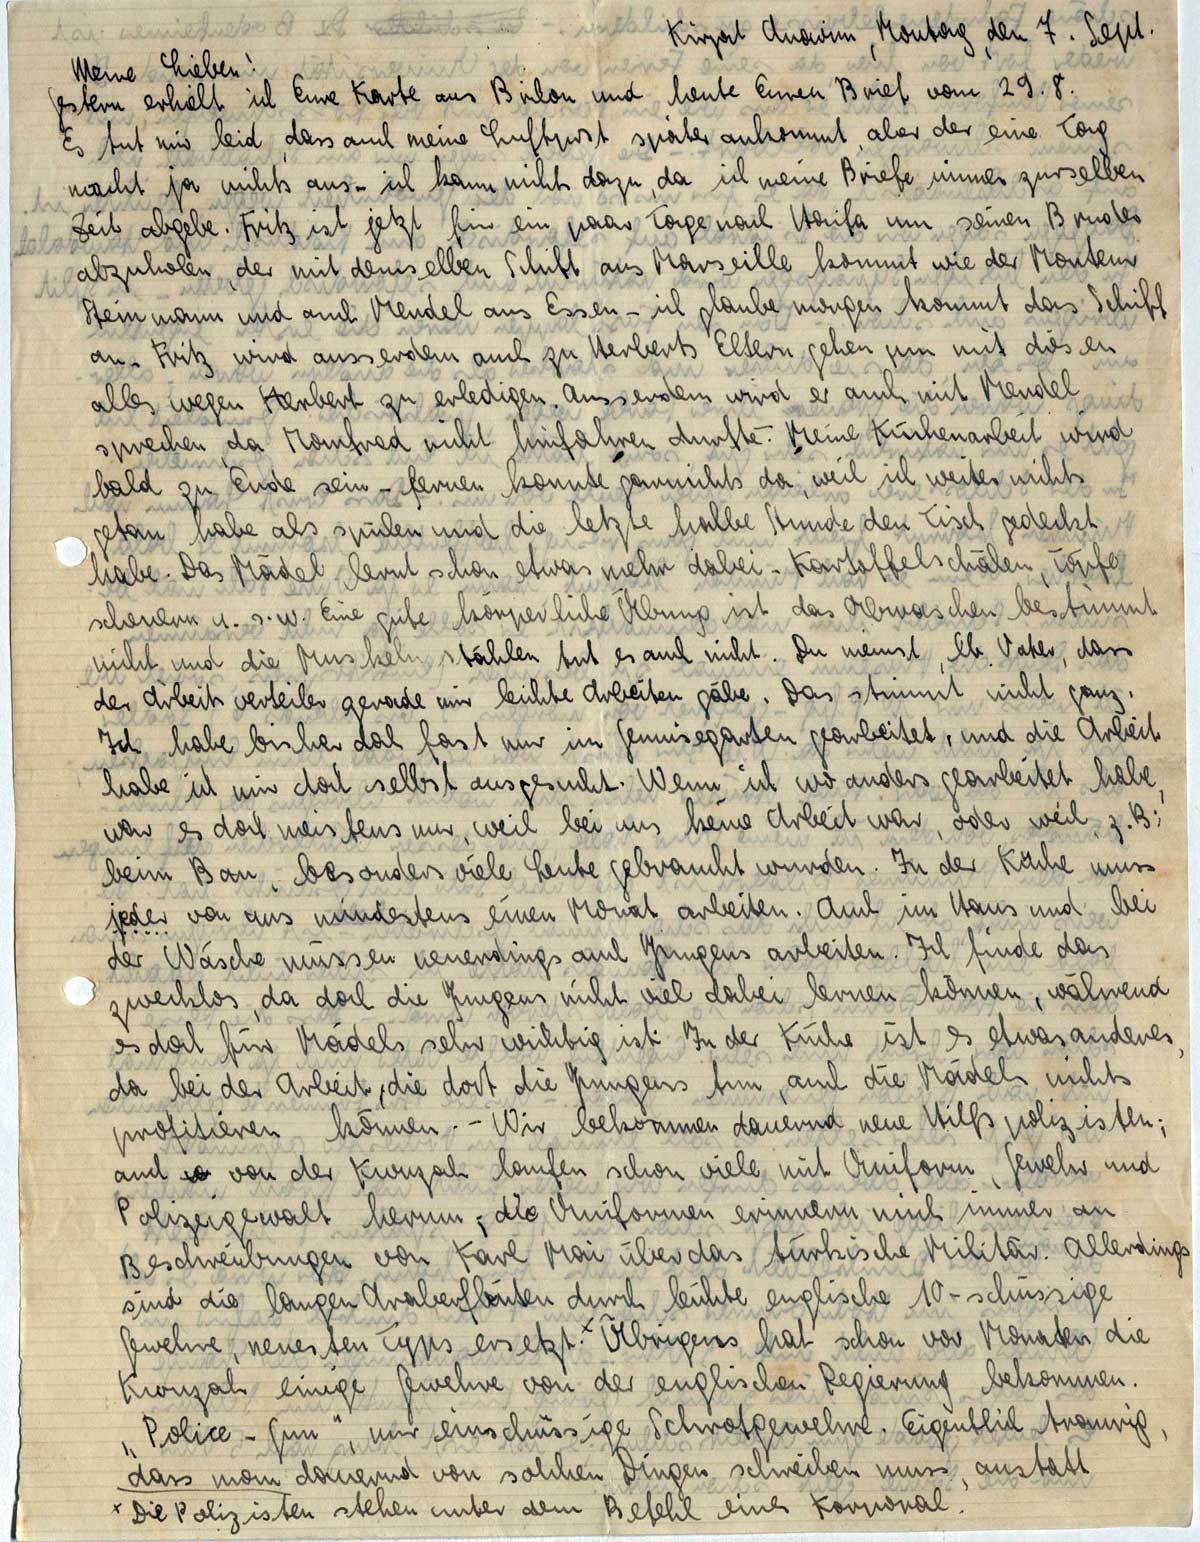 Kirjat Anavim, Montag, den 7. Sept.
Meine Lieben!
Gestern erhielt ich Eure Karte aus Brilon und heute Euren Brief vom 29.8.
Es tut mir leid, dass auch meine Luftpost später ankommt, aber der eine Tag
macht ja nichts aus - ich kann nichts dazu, da ich meine Briefe immer zurselben
Zeit abgebe. Fritz ist jetzt für ein paar Tage nach Haifa um seinen Bruder
abzuholen, der mit demselben Schiff aus Marseille kommt wie der Monteur
Steinmann und auch Mendel aus Essen - ich glaube morgen kommt das Schiff
an. Fritz wird ausserdem auch zu Herberts Eltern gehen um mit diesen
alles wegen Herbert zu erledigen. Ausserdem wird er auch mit Mendel
sprechen, da Manfred nicht hinfahren durfte. Meine Küchenarbeit wird
bald zu Ende sein - lernen konnte ich garnichts da, weil ich weiter nichts
getan habe als spülen und die letzte halbe Stunde den Tisch gedeckt
habe. Das Mädel lernt schon etwas mehr dabei - Kartoffelschälen, Töpfe
scheuern u.s.w. Eine gute körperliche Übung ist das Abwaschen bestimmt
nicht und die Muskeln stählen tut es auch nicht. Du meinst, lb. Vater, dass
der Arbeitsverteiler gerade mir leichte Arbeiten gäbe. Das stimmt nicht ganz.
Ich habe bisher doch fast nur im Gemüsegarten gearbeitet, und die Arbeit
habe ich mir doch selbst ausgesucht. Wenn ich wo anders gearbeitet habe,
war es doch meistens nur, weil bei uns keine Arbeit war, oder weil, z.B.:
beim Bau, besonders viele Leute gebraucht wurden. In der Küche muss
jeder von uns mindestens einen Monat arbeiten. Auch im Haus und bei
der Wäsche müssen neuerdings auch Jungens arbeiten. Ich finde das
zwecklos, da doch die Jungens nicht viel dabei lernen können, während
es doch für Mädels sehr wichtig ist. In der Küche ist es etwas anderes,
da bei der Arbeit, die dort die Jungens tun, auch die Mädels nichts
profitieren können. - Wir bekommen dauernd neue Hilfspolizisten;
auch von der Kwuzah laufen schon viele mit Uniform, Gewehr und
Polizeigewalt herum; die Uniformen erinnern mich immer an
Beschreibungen von Karl Mai über das türkische Militär. Allerdings
sind die langen Araberflinten durch leichte englische 10-schüssige
Gewehre, neuesten Typs ersetzt.ˣ Übrigens hat schon vor Monaten die
Kwuzah einige Gewehre von der englischen Regierung bekommen.
„Police-Gun“, nur einschüssige Schrotgewehre. Eigentlich traurig,
dass man dauernd von solchen Dingen schreiben muss, anstatt
ˣ Die Polizisten stehen unter dem Befehl eines Korporal.